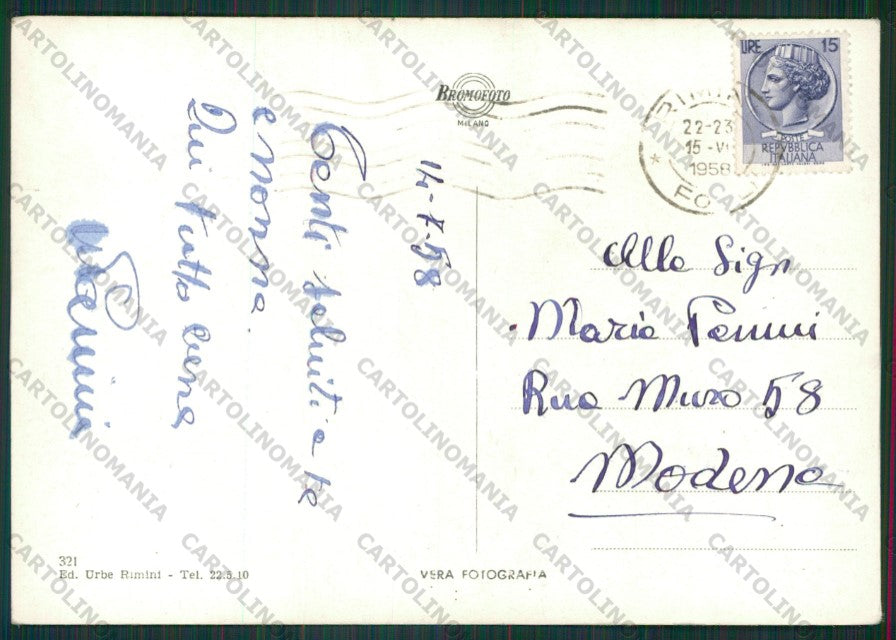 BROMOFOTO
MILANO
LIRE 15
POSTE
REPVBBLICA
ITALIANA
RIMINI
22-23
15-VII
1958
14-7-58
Tanti saluti a te
e nonna.
Qui tutto bene
Alla Sign
Maria Panini
Rua Muro 58
Modena
321
Ed. Urbe Rimini - Tel. 22.5.10
VERA FOTOGRAFIA
CARTOLINOMANIA